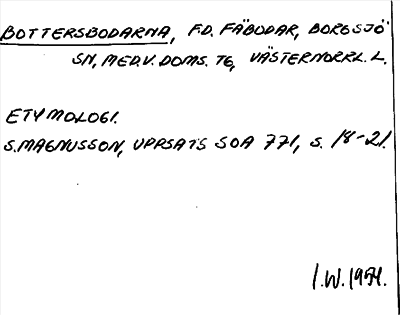 BOTTERSBODARNA, F.D. FÄBODAR, BORGSJÖ
SN, MED.V. DOMS. TG, VÄSTERNORRL. L.
ETYMOLOGI.
S. MAGNUSSON, UPPSATS SOA 771, S. 18-21.
I.W. 1954.